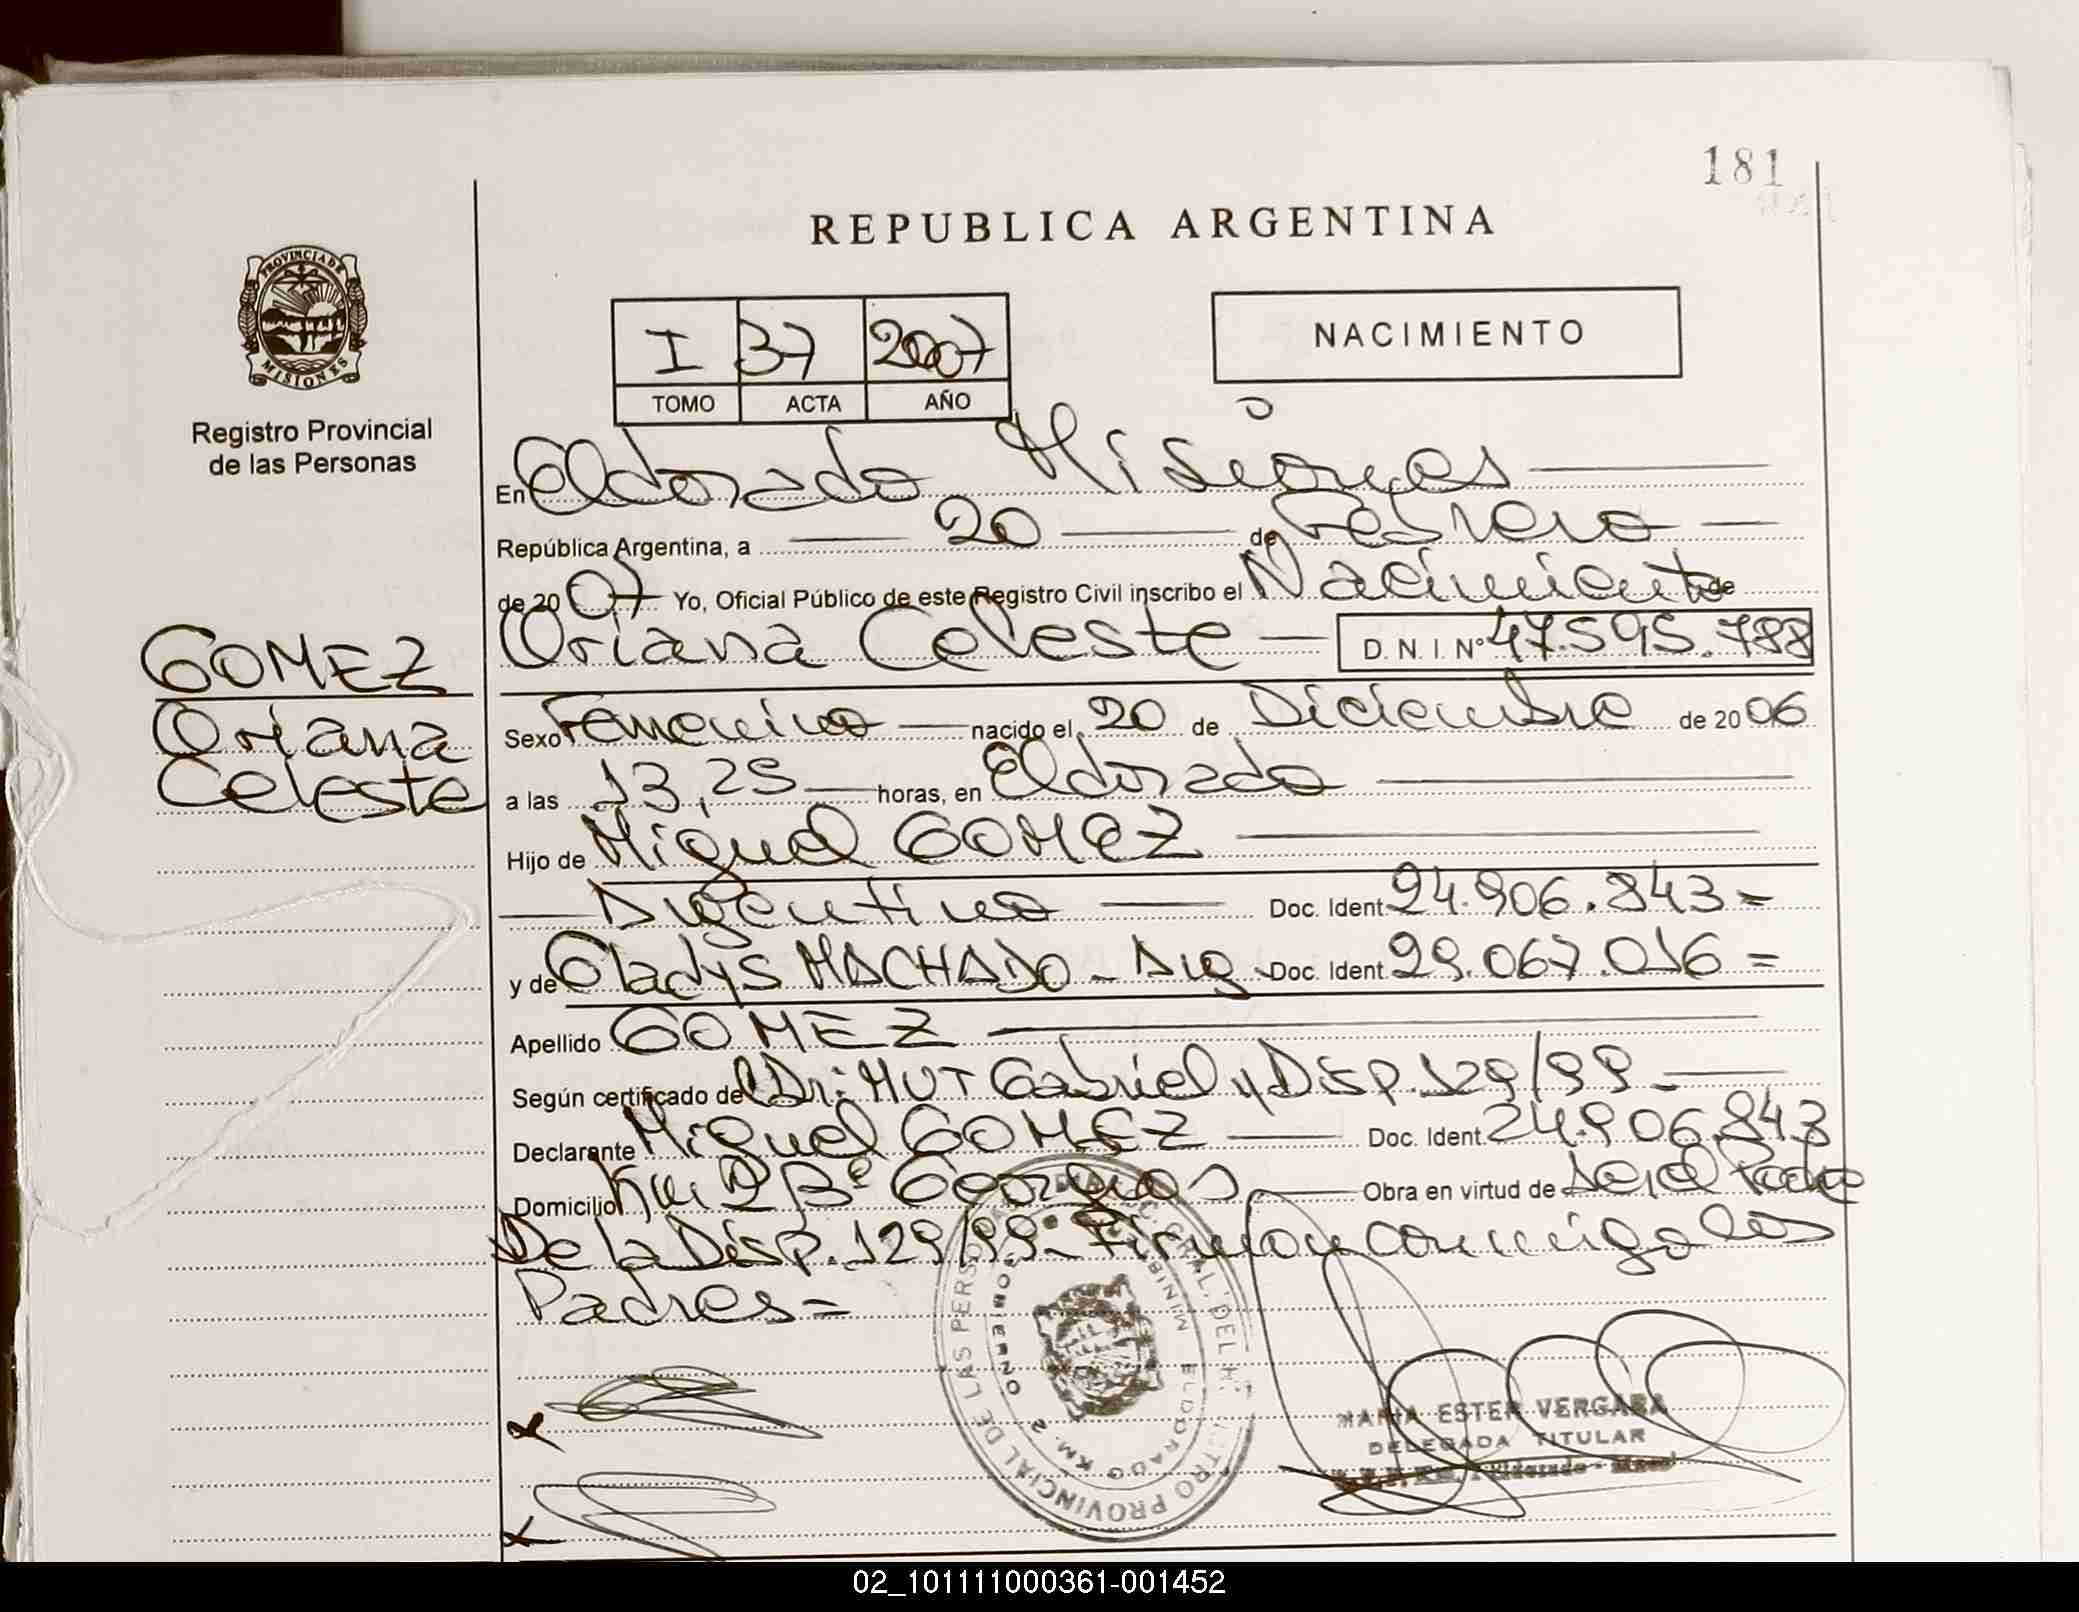 181
REPUBLICA ARGENTINA
PROVINCIA DE
MISIONES
Registro Provincial
de las Personas
I 37 2007
TOMO ACTA AÑO
NACIMIENTO
En Eldorado Misiones
República Argentina, a 20 de Febrero
de 2007 Yo, Oficial Público de este Registro Civil inscribo el Nacimiento de
Oriana Celeste D. N. I. Nº 47.595.788
GOMEZ
Oriana
Celeste
Sexo Femenino nacido el 20 de Diciembre de 2006
a las 13,25 horas, en Eldorado
Hijo de Miguel GOMEZ
Argentino Doc. Ident. 24.906.843=
y de Gladys MACHADO - Arg. Doc. Ident. 29.067.016=
Apellido GOMEZ
Según certificado del Dr: MUT Gabriel y Disp. 129/99-
Declarante Miguel GOMEZ Doc. Ident. 24.906.843
Domicilio Km 2 Bº Obra en virtud de Ser el Padre
De la Disp. 129/99- Firman conmigo los
Padres=
REGISTRO PROVINCIAL DE LAS PERSONAS
GOBIERNO
ELDORADO KM. 2
MARIA ESTER VERGARA
DELEGADA TITULAR
Eldorado
02_101111000361-001452